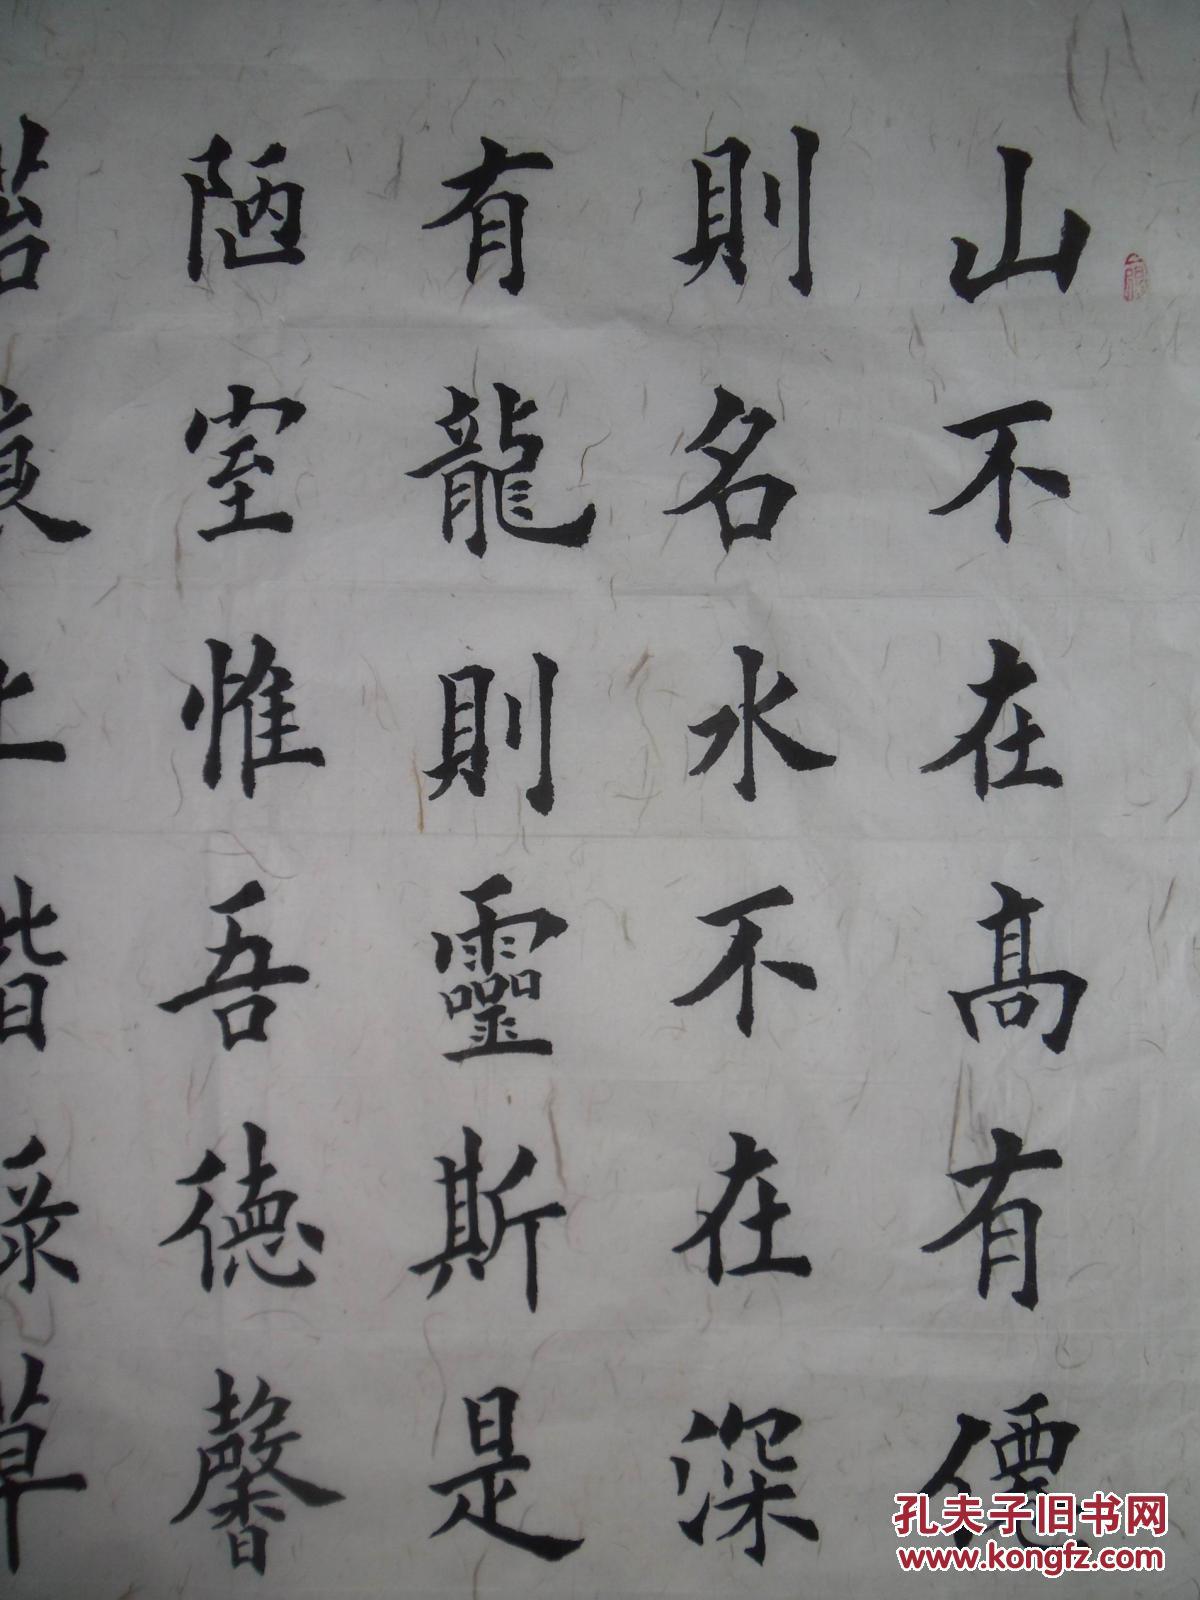 山不在高有僊
則名水不在深
有龍則靈斯是
陋室惟吾德馨
苔痕上階綠草
孔夫子旧书网
www.kongfz.com